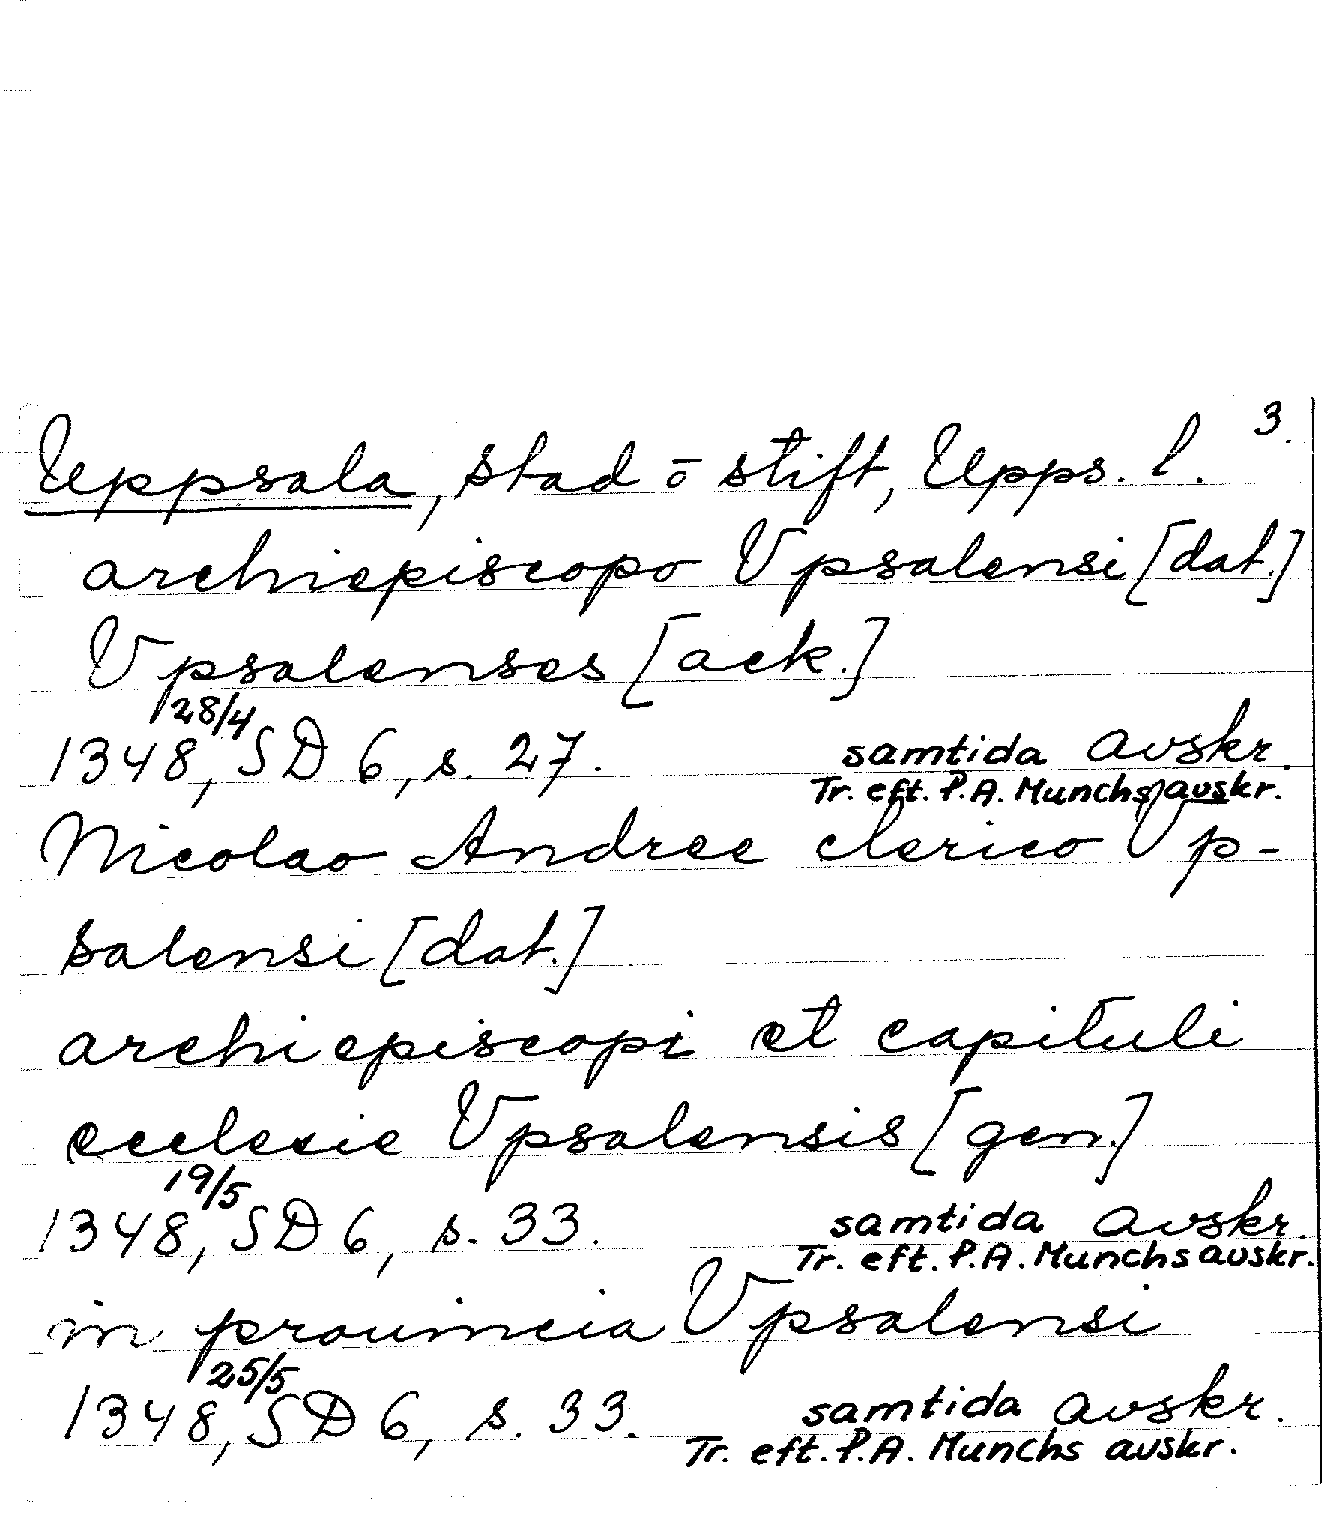 3.
Uppsala, stad ō stift, Upps. l.
archiepiscopo Vpsalensi [dat.]
Vpsalenses [ack.]
1348 28/4, SD 6, s. 27. samtida avskr.
Tr. eft. P.A. Munchs avskr.
Nicolao Andree clerico Vp-
salensi [dat.]
archiepiscopi et capituli
ecclesie Vpsalensis [gen.]
1348 19/5, SD 6, s. 33. samtida avskr.
Tr. eft. P.A. Munchs avskr.
in prouincia Vpsalensi
1348 25/5, SD 6, s. 33. samtida avskr.
Tr. eft. P.A. Munchs avskr.